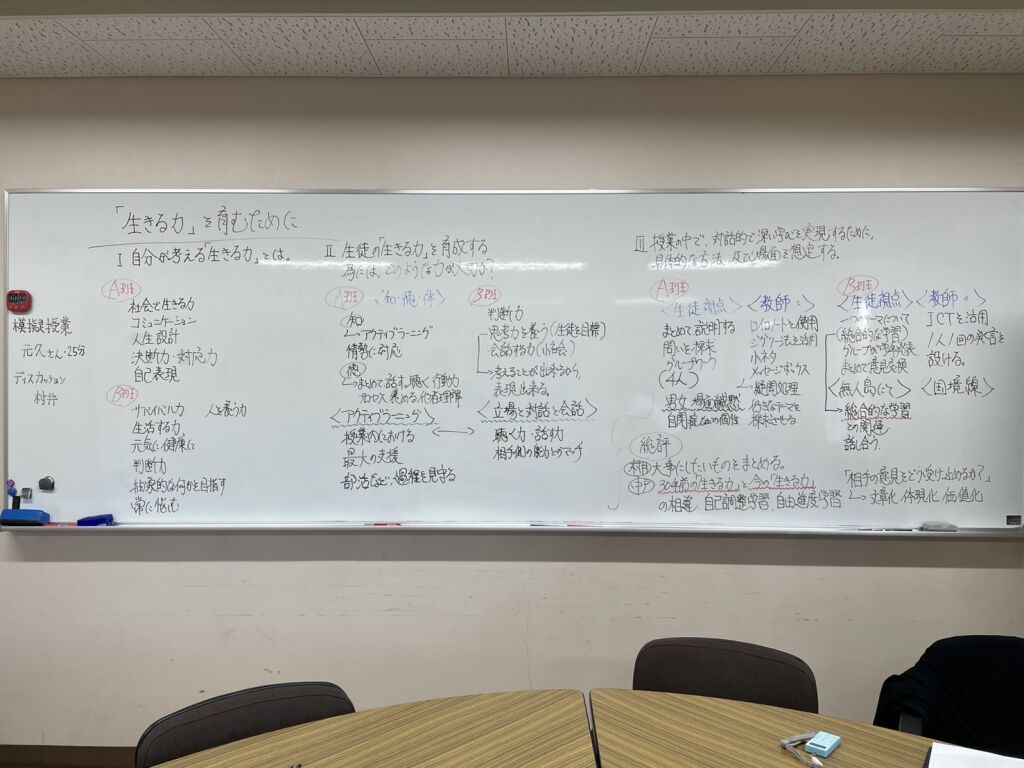 「生きる力」を育むために
模擬授業
元久さん・25分
ディスカッション
村井
Ⅰ 自分が考える「生きる力」とは。
A班
社会で生きる力
コミュニケーション
人生設計
決断力・対応力
自己表現
B班
サバイバル力 人を養う力
生活する力
元気に健康に
判断力
抽象的な何かを目指す
常に悩む
Ⅱ 生徒の「生きる力」を育成する
為には、どのような力が大切か?
A班 〈知・徳・体〉
知
アクティブラーニング
情勢に対応
徳
まとめて話す、聴く、行動力
プロセス 褒める 他者理解
〈アクティブラーニング〉
授業内における
最大の支援
部活など、過程を見守る
B班
判断力
思考力を養う(生徒を目標)
会話する力
考えることが出来るから、
表現出来る。
〈立場と対話と会話〉
聴く力・話す力
相手側の能力とのマッチ
Ⅲ 授業の中で、対話的で深い学びを実現するために、
具体的な方法、及び場面を想定する。
A班
〈生徒視点〉
まとめて説明する
問いを探求
グループワーク
(4人)
男女
自閉症などの個性
〈教師〃〉
ロイロノートを使用
ジグソー法を活用
小ネタ
メッセージボックス
疑問処理
好きなテーマを
探求させる
B班
〈生徒視点〉
一つのテーマについて
(総合的な学習)
グループか学年発表
まとめて意見交換
〈無人島にて〉
総合的な学習
との関連
話し合う。
〈教師〃〉
ICTを活用
1人1回の発言を
設ける。
〈国境線〉
総評
大事にしたいものをまとめる。
30年前の「生きる力」と今の「生きる力」
の相違、自己調整学習、自由進度学習
「相手の意見をどう受け止めるか?」
文章化、体現化、価値化